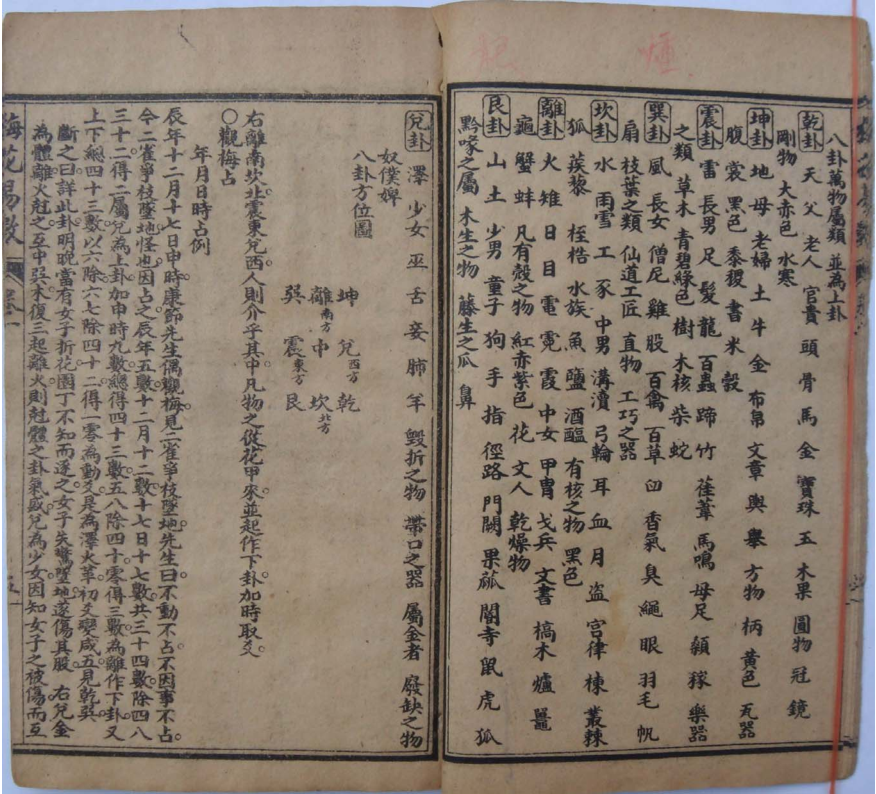 八卦萬物屬類 並為上卦
乾卦 天 父 老人 官貴 頭 骨 馬 金 寶珠 玉 木果 圓物 冠 鏡
剛物 大赤色 水寒
坤卦 地 母 老婦 土 牛 金 布帛 文章 輿 轝 方物 柄 黃色 瓦器
腹 裳 黑色 黍稷 書 米 穀
震卦 雷 長男 足 髮 龍 百蟲 蹄 竹 萑葦 馬鳴 母足 顙 稼 樂器
之類 草木 青碧綠色 樹 木核 柴 蛇
巽卦 風 長女 僧尼 雞 股 百禽 百草 臼 香氣 臭 繩 眼 羽毛 帆
扇 枝葉之類 仙道工匠 直物 工巧之器
坎卦 水 雨雪 工 豕 中男 溝瀆 弓輪 耳 血 月 盜 宮律 棟 叢棘
狐 蒺藜 桎梏 水族 魚 鹽 酒醞 有核之物 黑色
離卦 火 雉 日 目 電 霓 霞 中女 甲冑 戈兵 文書 槁木 爐 鼉
龜 蟹 蚌 凡有殼之物 紅赤紫色 花 文人 乾燥物
艮卦 山 土 少男 童子 狗 手 指 徑路 門闕 果蓏 閽寺 鼠 虎 狐
黔喙之屬 木生之物 藤生之瓜 鼻
兌卦 澤 少女 巫 舌 妾 肺 羊 毀折之物 帶口之器 屬金者 廢缺之物
奴僕婢
八卦方位圖
坤 兌西方 乾
離南方 中 坎北方
巽 震東方 艮
右離南坎北震東兌西人則介乎其中凡物之從花甲來並起作下卦加時取爻
〇觀梅占
年月日時占例
辰年十二月十七日申時康節先生偶觀梅見二雀爭枝墜地先生曰不動不占不因事不占
今二雀爭枝墜地怪也因占之辰年五數十二月十二數十七日十七數共三十四數除四八
三十二得二屬兌為上卦加申時九數總得四十三數五八除四十零得三數為離作下卦又
上下總四十三數以六除六七除四十二得一零為動爻是為澤火革初爻變咸互見乾巽
斷之曰詳此卦明晚當有女子折花園丁不知而逐之女子失驚墜地遂傷其股 右兌金
為體離火尅之互中巽木復三起離火則尅體之卦氣盛兌為少女因知女子之被傷而互
梅花易數
卷一